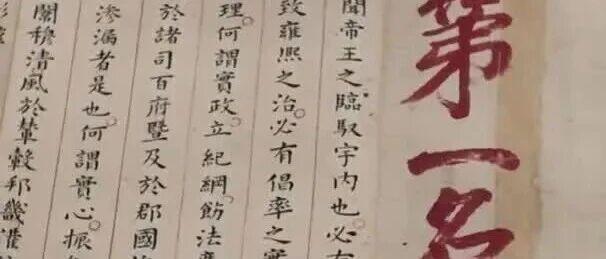 第一名
聞帝王之臨馭宇内也必有
致雍熙之治必有倡率之實
理何謂實政立紀綱飭法度
於諸司百府暨及於郡國
滲漏者是也何謂實心振
穆清風於輦轂邦畿